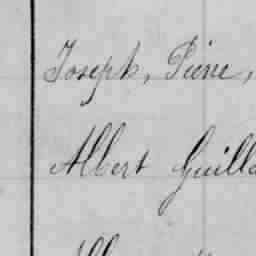 Joseph, Pierre,
Albert Guill